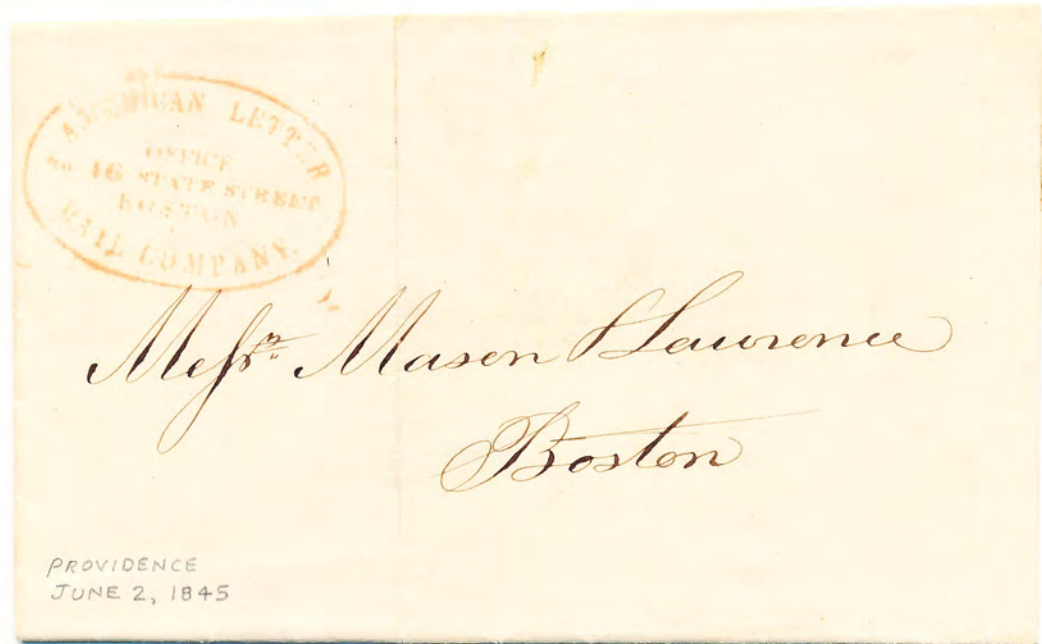 AMERICAN LETTER
OFFICE
No. 16 STATE STREET
BOSTON
MAIL COMPANY.
Messrs Mason & Lawrence
Boston
PROVIDENCE
JUNE 2, 1845